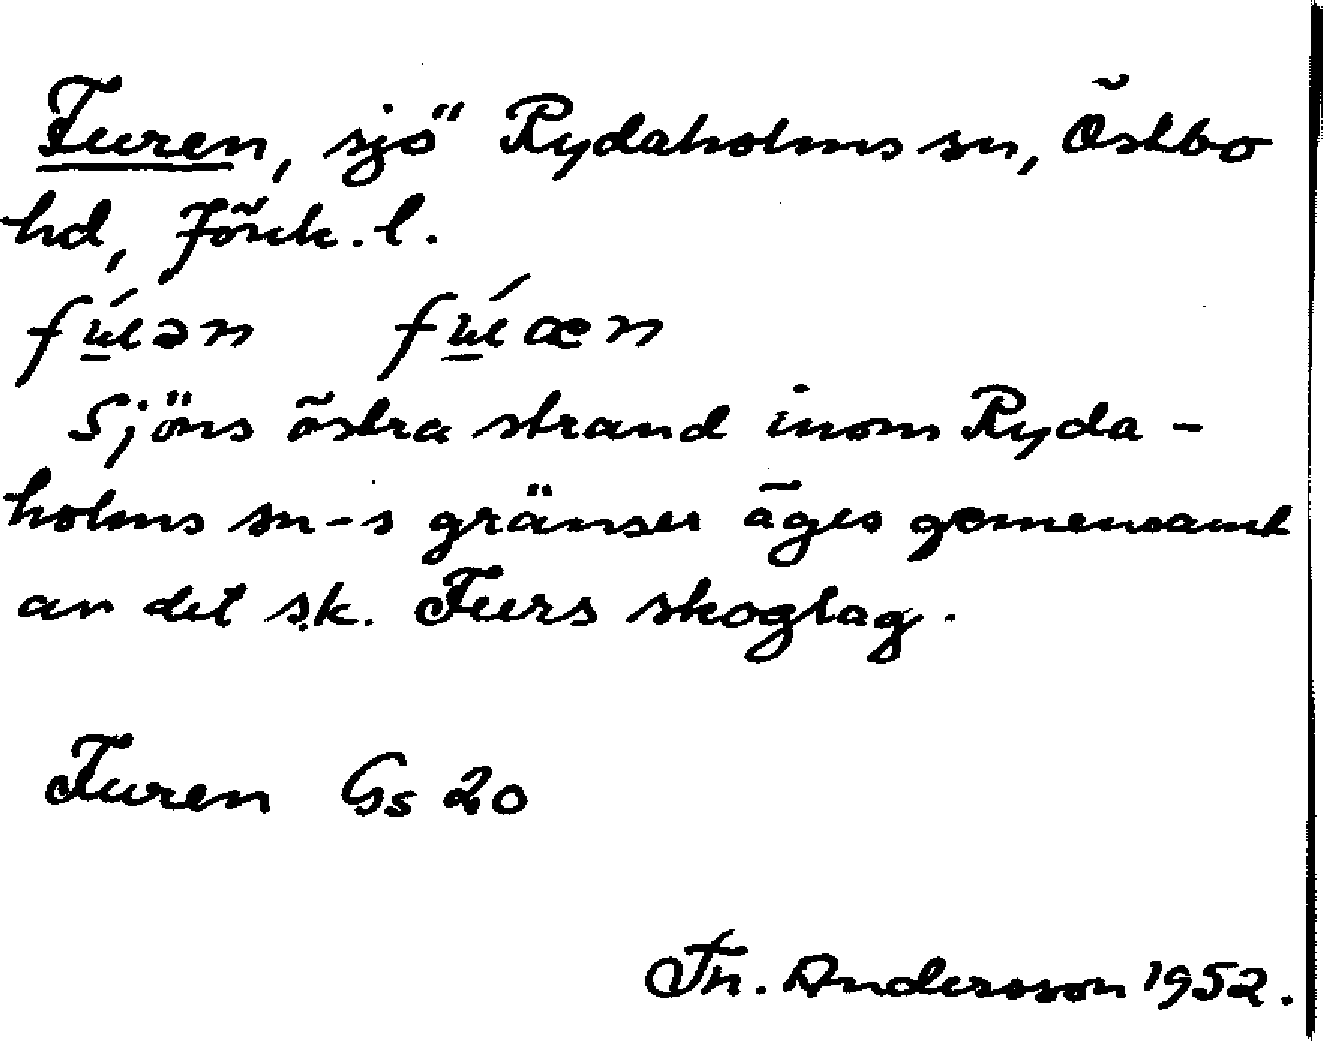 Furen, sjö Rydaholms sn, Östbo
hd, Jönk. l.
fúɩən fúɩæn
Sjöns östra strand inom Ryda-
holms sn-s gränser äges gemensamt
av det s.k. Furs skoglag.
Furen Gs 20
Fn. Andersson 1952.